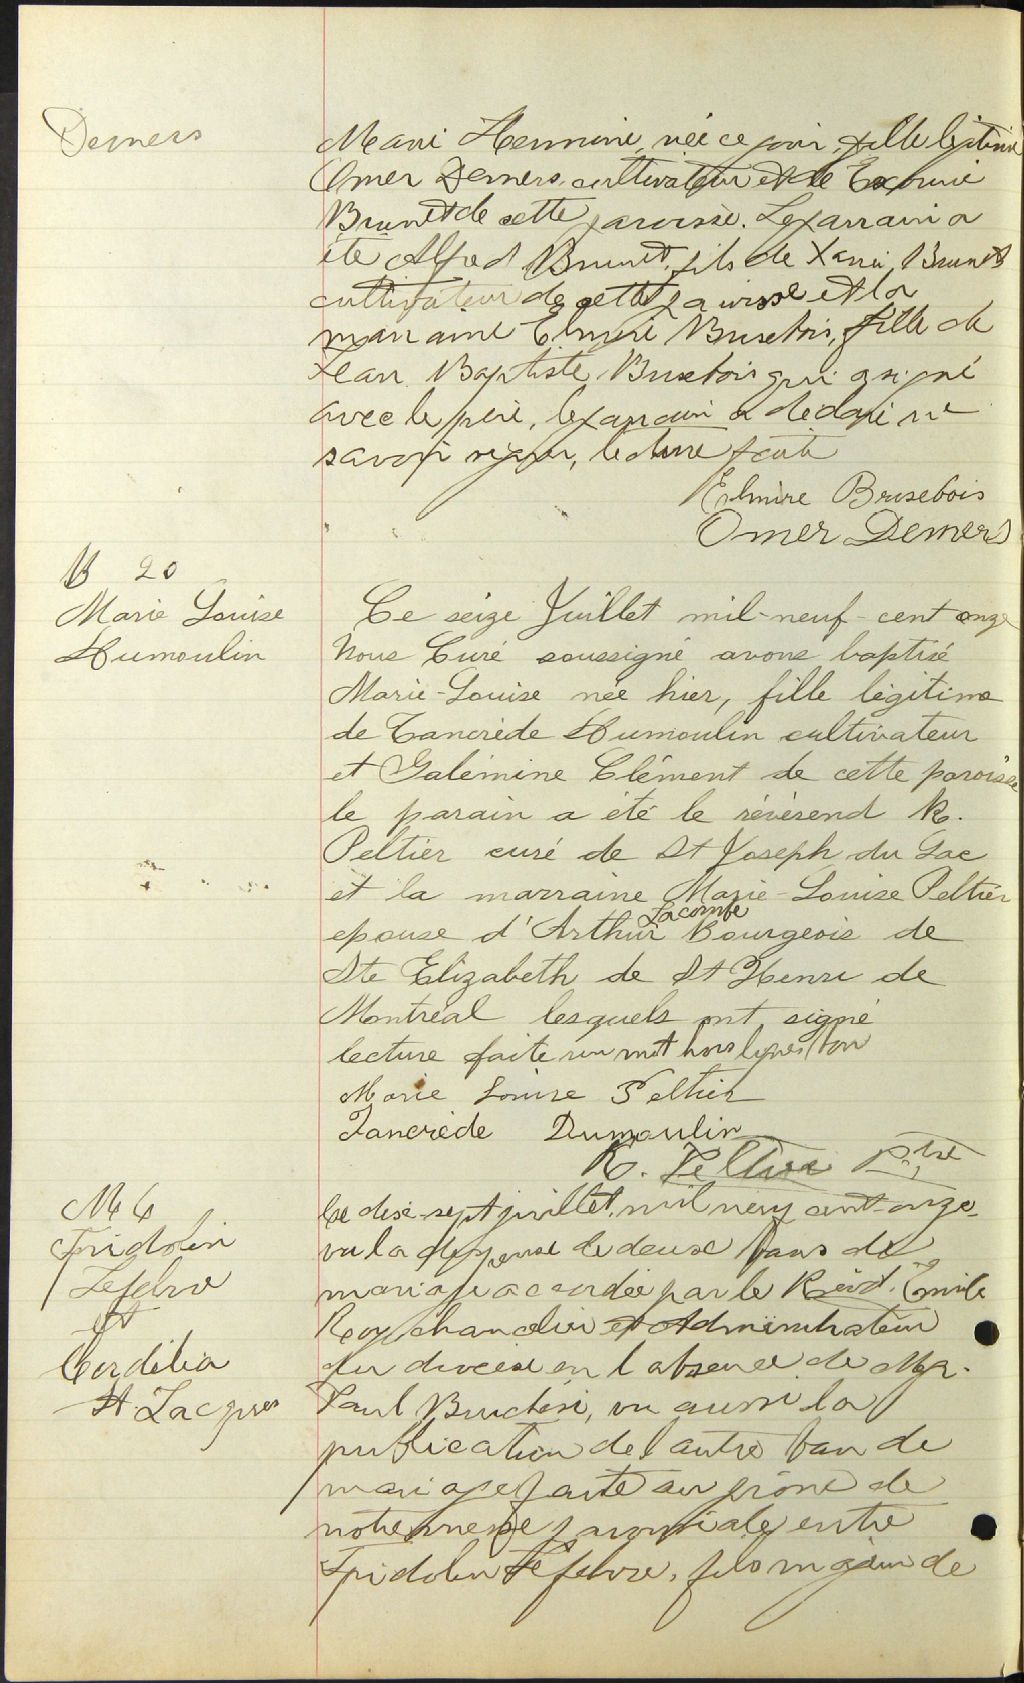 Demers
Marie Hermine, née ce jour, fille légitime
Omer Demers, cultivateur et de
Brunet de cette paroisse. Le parrain a
été Alfred Brunet, fils de Brunet
cultivateur de cette paroisse et la
marraine Elmire Brisebois, fille de
Jean Baptiste Brisebois qui a signé
avec le père, le parrain a déclaré ne
savoir signer, lecture faite
Elmire Brisebois
Omer Demers
B 20
Marie Louise
Dumoulin
Ce seize Juillet mil-neuf-cent onze
Nous Curé soussigné avons baptisé
Marie-Louise née hier, fille légitime
de Tancrède Dumoulin cultivateur
et Galémine Clément de cette paroisse
le parain a été le révérend R.
Peltier curé de St Joseph du Lac
et la marraine Marie-Louise Peltier
Lacombe
epouse d'Arthur Bourgeois de
Ste Elizabeth de St Henri de
Montréal lesquels ont signé
lecture faite un mot hors lignes bon
Marie Louise Peltier
Tancrède Dumoulin
R. Peltier Ptre
M 6
Fridolin
Lefebvre
et
Cordélia
St. Jacques
Ce dix-sept juillet, mil neuf cent-onze,
vu la dispense de deux bans de
mariage accordée par le Révd. Emile
Roy chancelier et Administrateur
du diocèse en l'absence de Mgr.
Paul Bruchési, vu aussi la
publication de l'autre ban de
mariage faite au prône de
notre messe paroissiale entre
Fridolin Lefebvre, fils majeur de